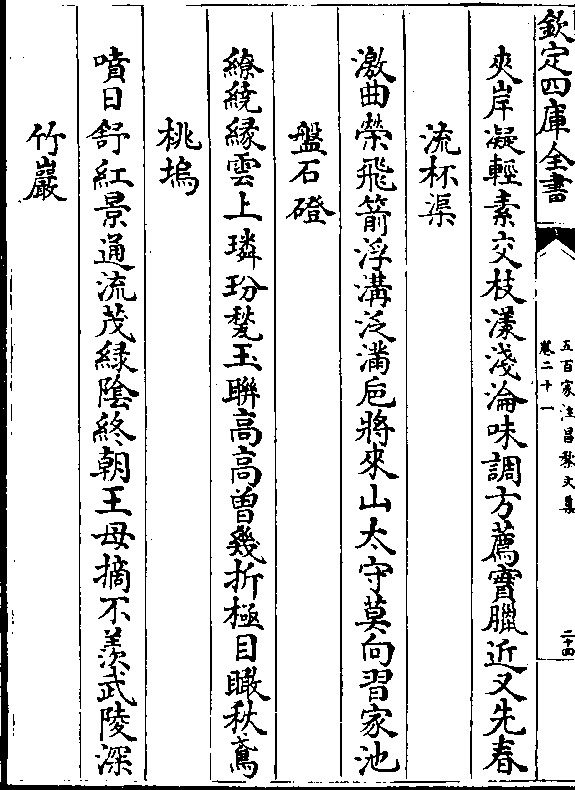 欽定四庫全書
五百家注昌黎文集
卷二十一
二十四
夾岸凝輕素交枝漾淺淪味調方薦實臘近又先春
流杯渠
激曲縈飛箭浮溝泛滿巵將來山太守莫向習家池
盤石磴
繚繞縁雲上璘玢甃玉聯高高曽幾折極目瞰秋鳶
桃塢
噴日舒紅景通流茂緑陰終朝王母摘不羨武陵深
竹巖